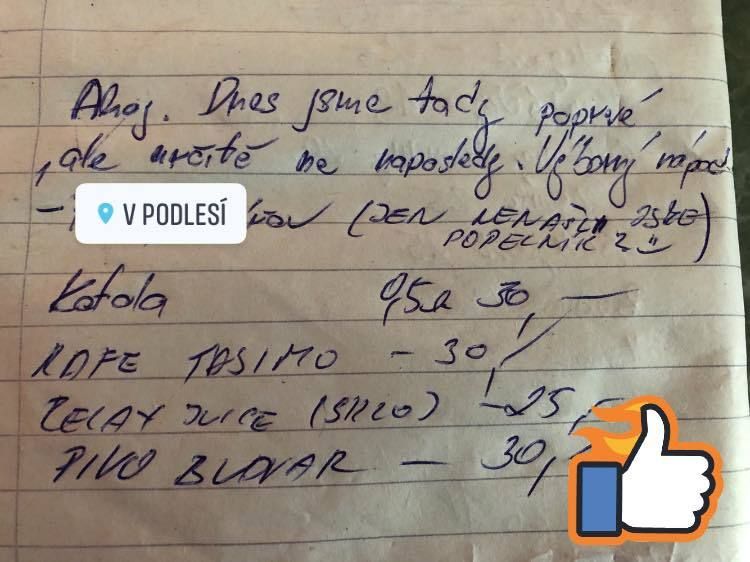 Ahoj. Dnes jsme tady poprvé
, ale určitě ne naposledy. Výborný nápad
V PODLESÍ
- (JEN NENAŠLI JSME
POPELNÍK?)
Kofola 0,5l 30,-
KAFE TASIMO - 30,-
RELAX JUICE (SKLO) - 25,-
PIVO BLOVAR - 30,-